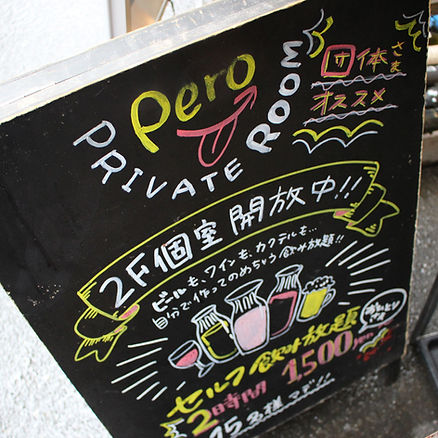 Pero
PRIVATE ROOM
団体さま
オススメ
2F個室開放中!!
ビールも、ワインも、カクテルも…
自分で作ってのめちゃう飲み放題!!
おひとりさま
セルフ飲み放題
2時間 1,500yen
15名様まで!!